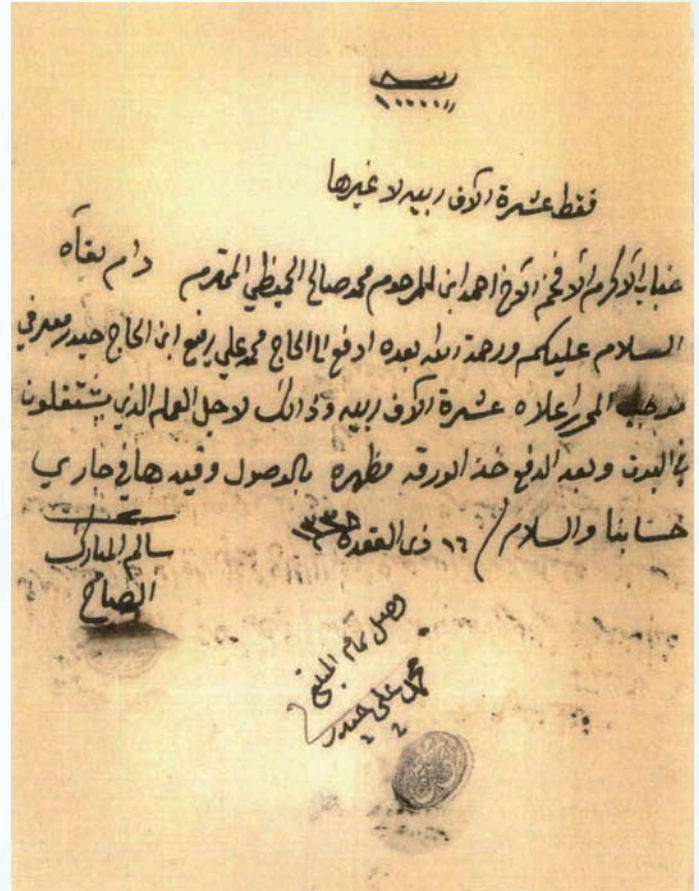 ربيه
١٠٠٠٠
فقط عشرة الآف ربيه لا غيرها
جناب الأكرم الأفخم الأخ احمد ابن المرحوم محمد صالح الحميضي المحترم دام بقآه
السلام عليكم ورحمة الله بعده ادفع الى الحاج محمد علي رفيع ابن الحاج حيدر معرفي
موجب المحرر اعلاه عشرة الآف ربيه وذالك لاجل العمله الذي يشتغلون
في وبعد الدفع خذ الورقه مظهره بالوصول وقيدها في جاري
حسابنا والسلام / ١٦ ذي القعدة
سالم المبارك
الصباح
وصل تمام المبلغ
محمد علي حيدر